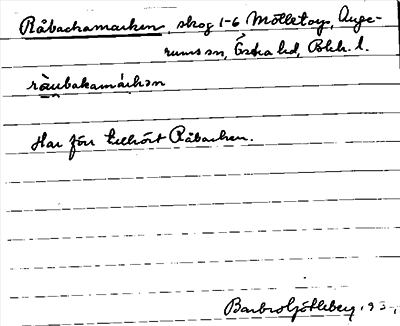 Råbackamarken, skog 1-6 Mölletorp, Auge-
rums sn, Östra hd, Blek. l.
råubakamárkən
Har förr tillhört Råbacken.
Barbro Götleberg, 193